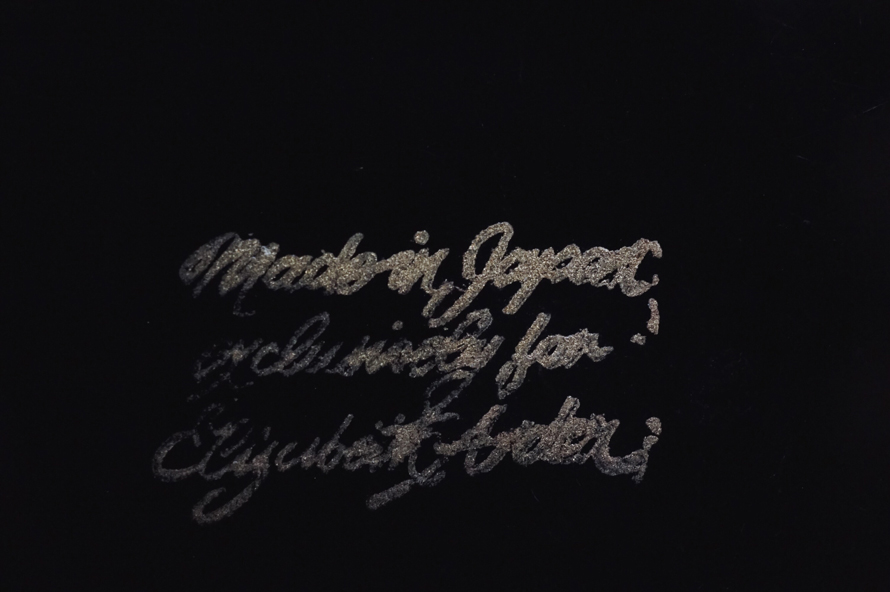 Made in Japan
exclusively for
Elizabeth Arden